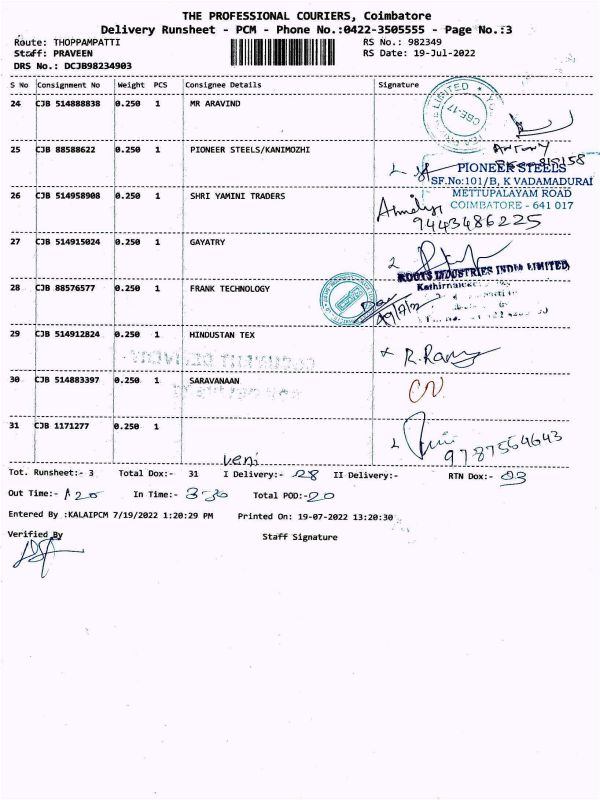 THE PROFESSIONAL COURIERS, Coimbatore
Delivery Runsheet - PCM - Phone No.:0422-3505555 - Page No.:3
Route: THOPPAMPATTI RS No.: 982349
Staff: PRAVEEN RS Date: 19-Jul-2022
DRS No.: DCJB98234903
S No Consignment No Weight PCS Consignee Details Signature
24 CJB 514888838 0.250 1 MR ARAVIND
CBE-17
Antony
25 CJB 88588622 0.250 1 PIONEER STEELS/KANIMOZHI
PIONEER STEELS
SF.No:101/B, K VADAMADURAI
METTUPALAYAM ROAD
COIMBATORE - 641 017
26 CJB 514958908 0.250 1 SHRI YAMINI TRADERS
9443486225
27 CJB 514915024 0.250 1 GAYATRY
ROOTS INDUSTRIES INDIA LIMITED
28 CJB 88576577 0.250 1 FRANK TECHNOLOGY
29 CJB 514912824 0.250 1 HINDUSTAN TEX
30 CJB 514883397 0.250 1 SARAVANAAN
31 CJB 1171277 0.250 1
9787564643
veni
Tot. Runsheet:- 3 Total Dox:- 31 I Delivery:- 28 II Delivery:- RTN Dox:- 03
Out Time:- 1 20 In Time:- 3-30 Total POD:- 20
Entered By :KALAIPCM 7/19/2022 1:20:29 PM Printed On: 19-07-2022 13:20:30
Verified By Staff Signature